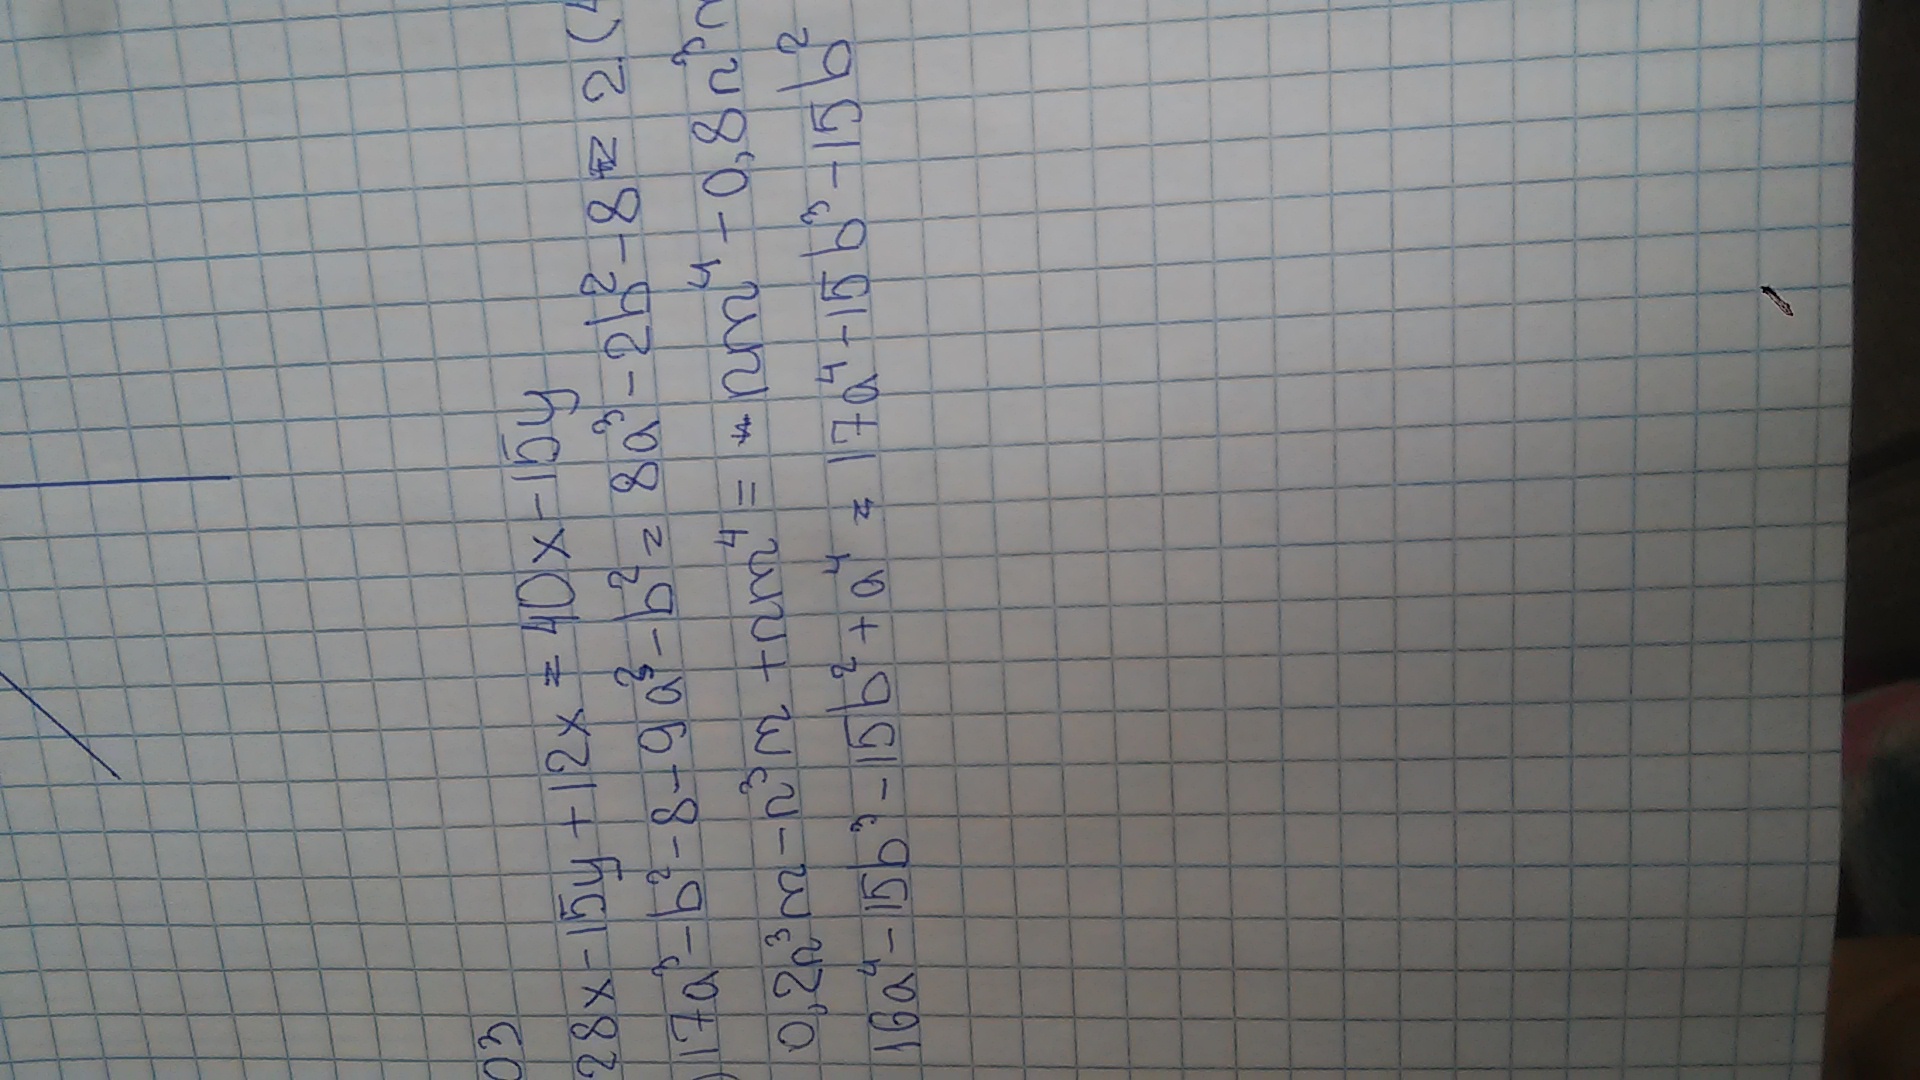 03
28x-15y+12x=40x-15y
)17a³-b²-8-9a³-b²=8a³-2b²-8=2(
0,2n³m-n³m+nm⁴=nm⁴-0,8n³
16a⁴-15b³-15b²+a⁴=17a⁴-15b³-15b²